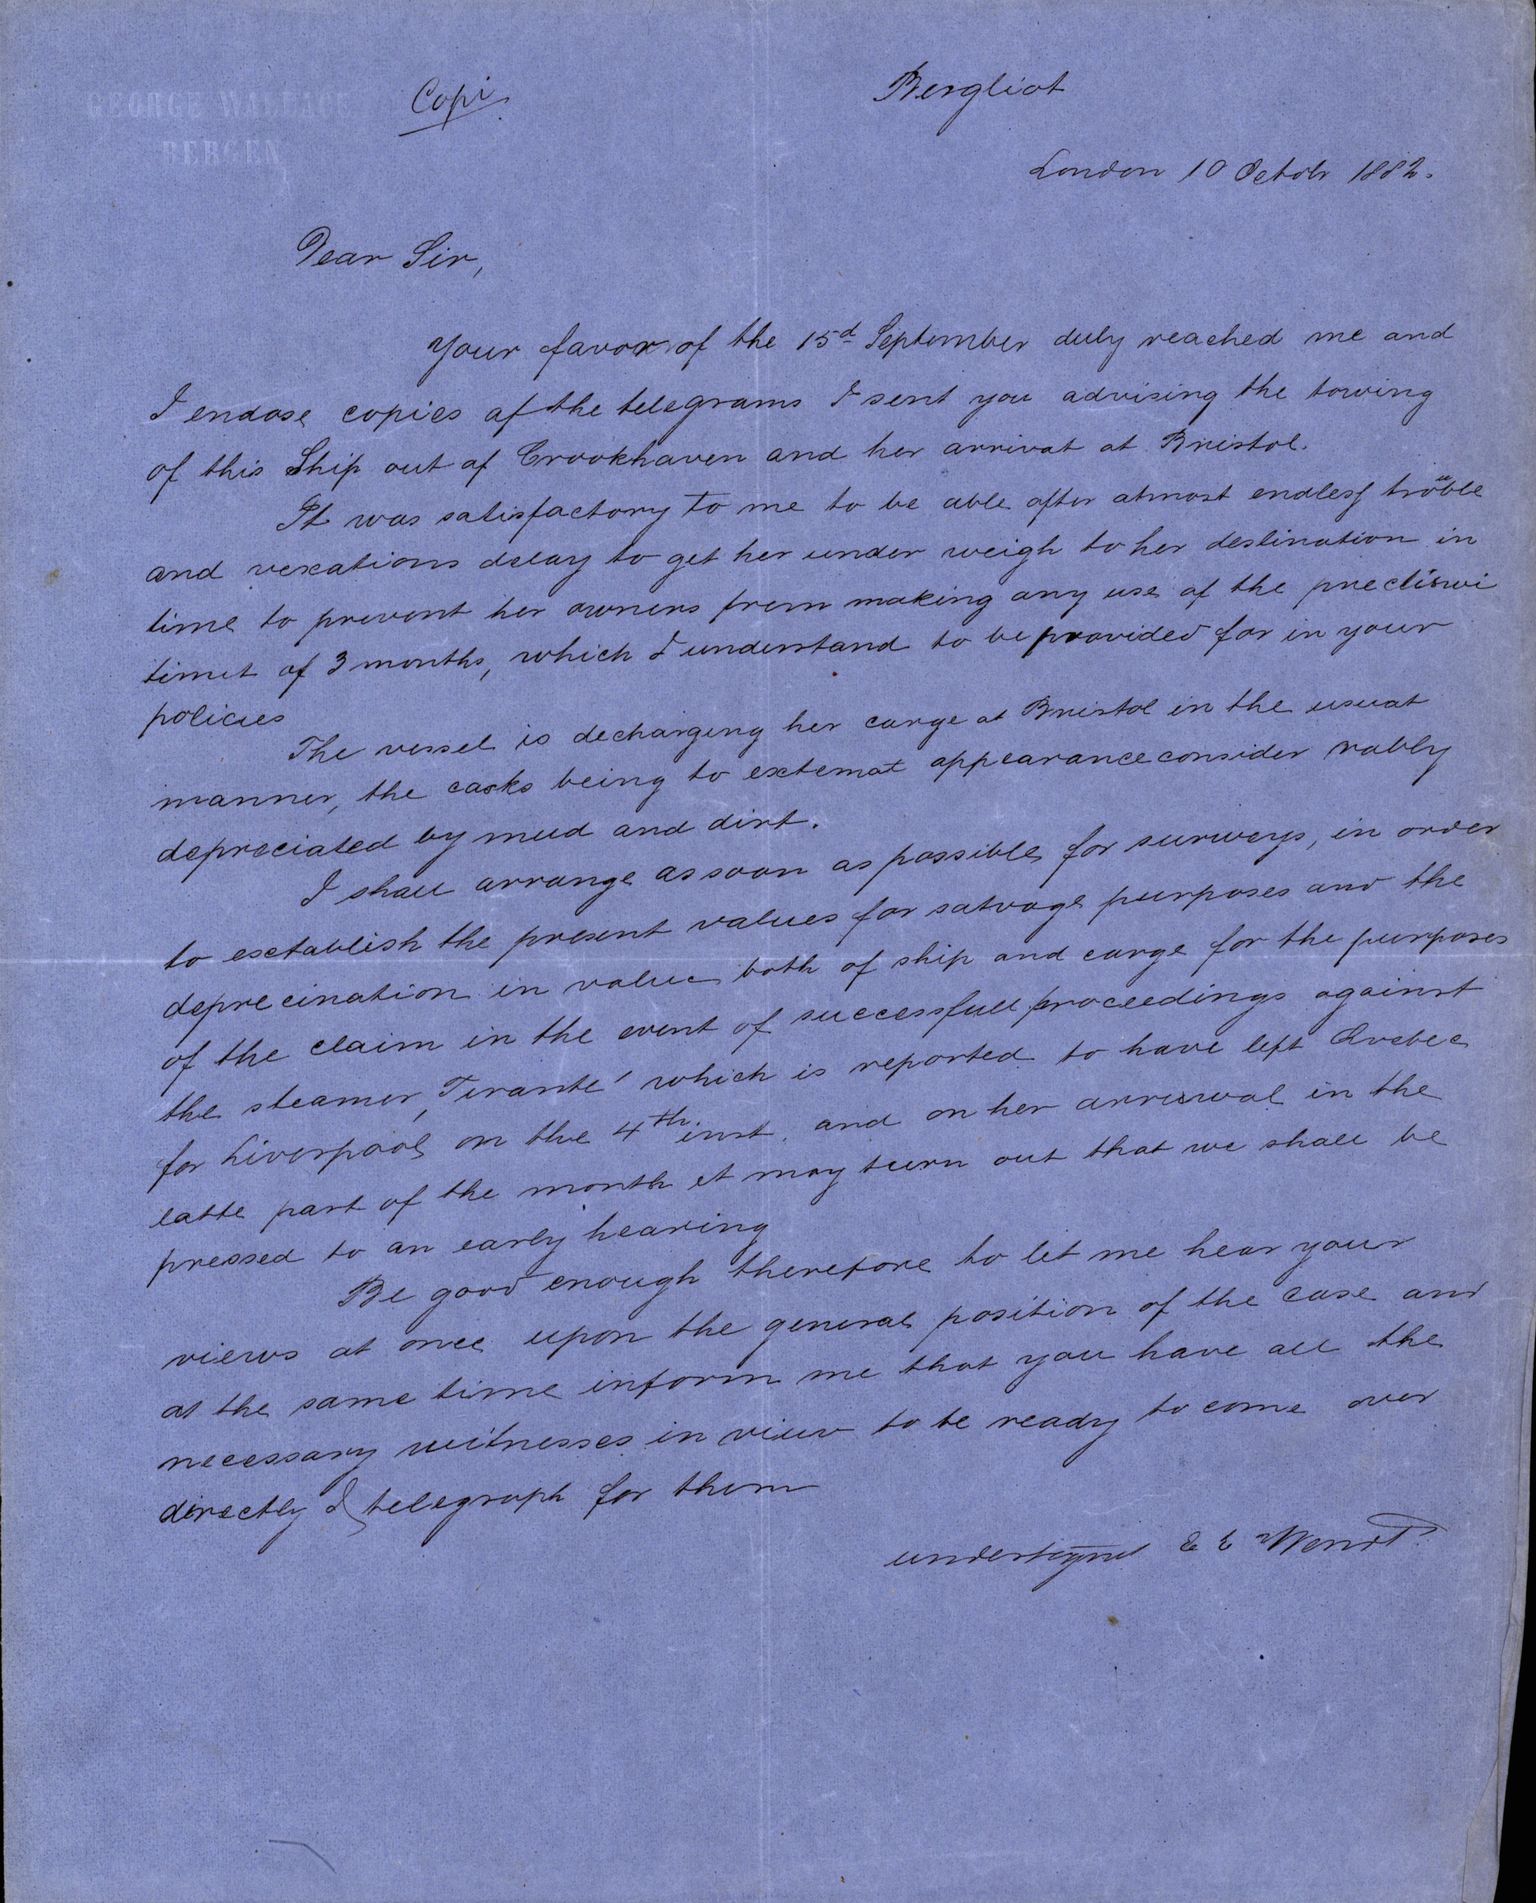 GEORGE WALLACE
BERGEN
Copi
Bergliot
London 10 Octobr 1882.
Dear Sir,
Your favor of the 15d September duly reached me and
I enclose copies of the telegrams I sent you advising the towing
of this Ship out of Crookhaven and her arrivat at Bristol.
It was satisfactory to me to be able after atmost endless trouble
and vexations delay to get her under weigh to her destination in
time to prevent her owners from making any use of the
timit of 3 months, which I understand to be provided for in your
policies
The vessel is decharging her carge at Bristol in the usuat
manner, the casks being to extemat appearance consider rably
depreciated by mud and dirt.
I shall arrange as soon as possible for surweys, in order
to esctablish the present values for satvage purposes and the
deprecination in value both of ship and carge for the purposes
of the claim in the event of successfull proceedings against
the steamer, Tirante' which is reported to have left Qvebec
for Liverpool on the 4th inst. and on her arrurwal in the
latte part of the month it may turn out that we shall be
pressed to an early hearing
Be good enough therefore to let me hear your
views at once upon the general position of the case and
at the same time inform me that you have all the
necessary witnesses in view to be ready to come over
directly I telegraph for them
undertegnet E E Wendt